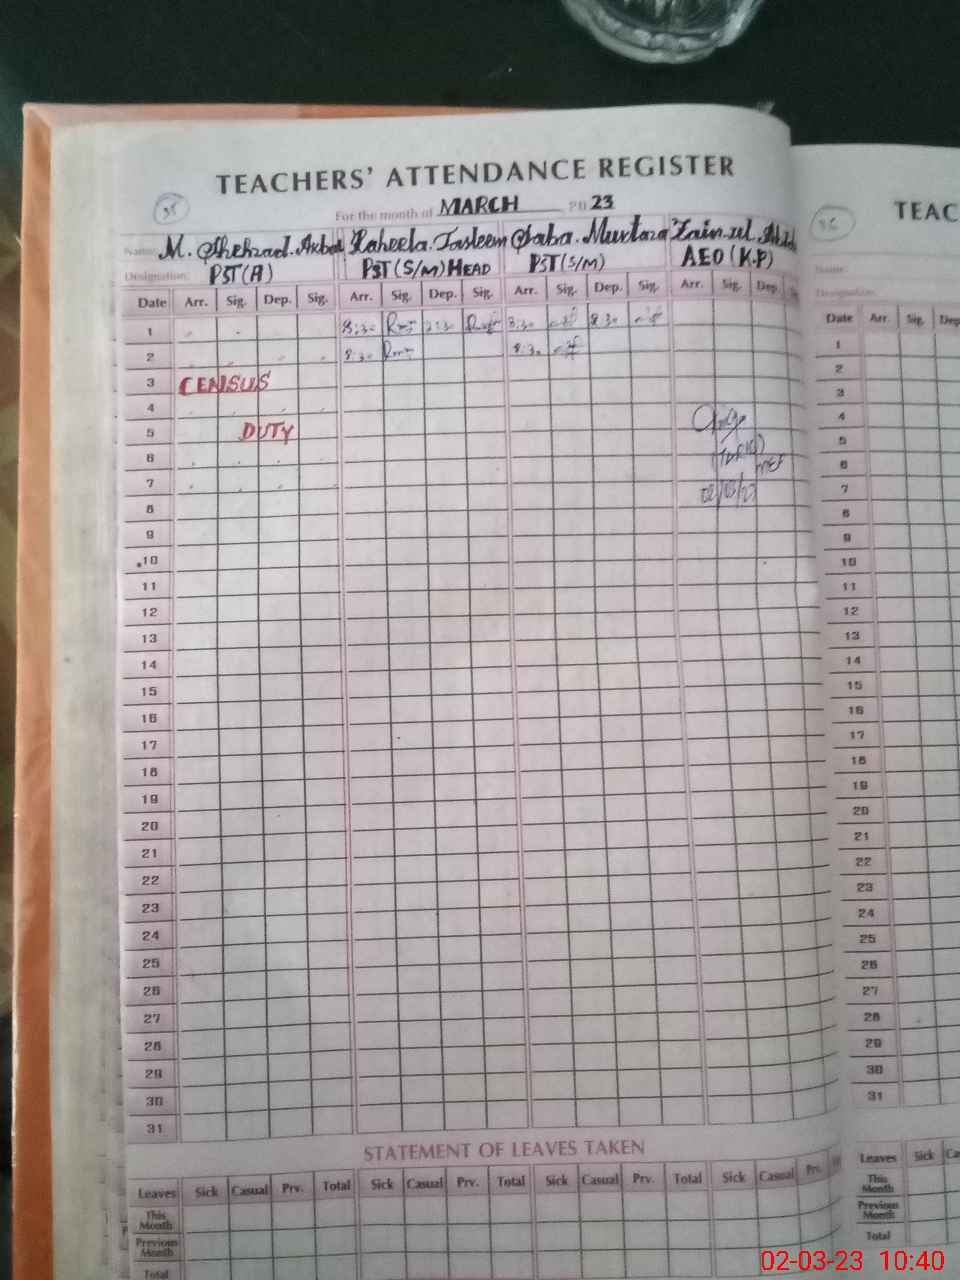 TEACHERS' ATTENDANCE REGISTER
35
For the month of MARCH 20 23
Name: M. Shehzad. Akbar Raheela. Tasleem Saba. Murtaza Zain.ul.
Designation: PST(A) PST(S/M)HEAD PST(S/M) AEO(K.P)
Date Arr. Sig. Dep. Sig. Arr. Sig. Dep. Sig. Arr. Sig. Dep. Sig. Arr. Sig. Dep.
1 8:30 8:30
2 8:30 8:30
3 CENSUS
4
5 DUTY
6
7 02/03/23
8
9
10
11
12
13
14
15
16
17
18
19
20
21
22
23
24
25
26
27
28
29
30
31
STATEMENT OF LEAVES TAKEN
Leaves Sick Casual Prv. Total Sick Casual Prv. Total Sick Casual Prv. Total Sick Casual Prv.
This Month
Previous Month
Total
TEAC
36
Name:
Designation:
Date Arr. Sig. Dep
1
2
3
4
5
6
7
8
9
10
11
12
13
14
15
16
17
18
19
20
21
22
23
24
25
26
27
28
29
30
31
Leaves Sick Ca
This Month
Previous Month
Total
02-03-23 10:40